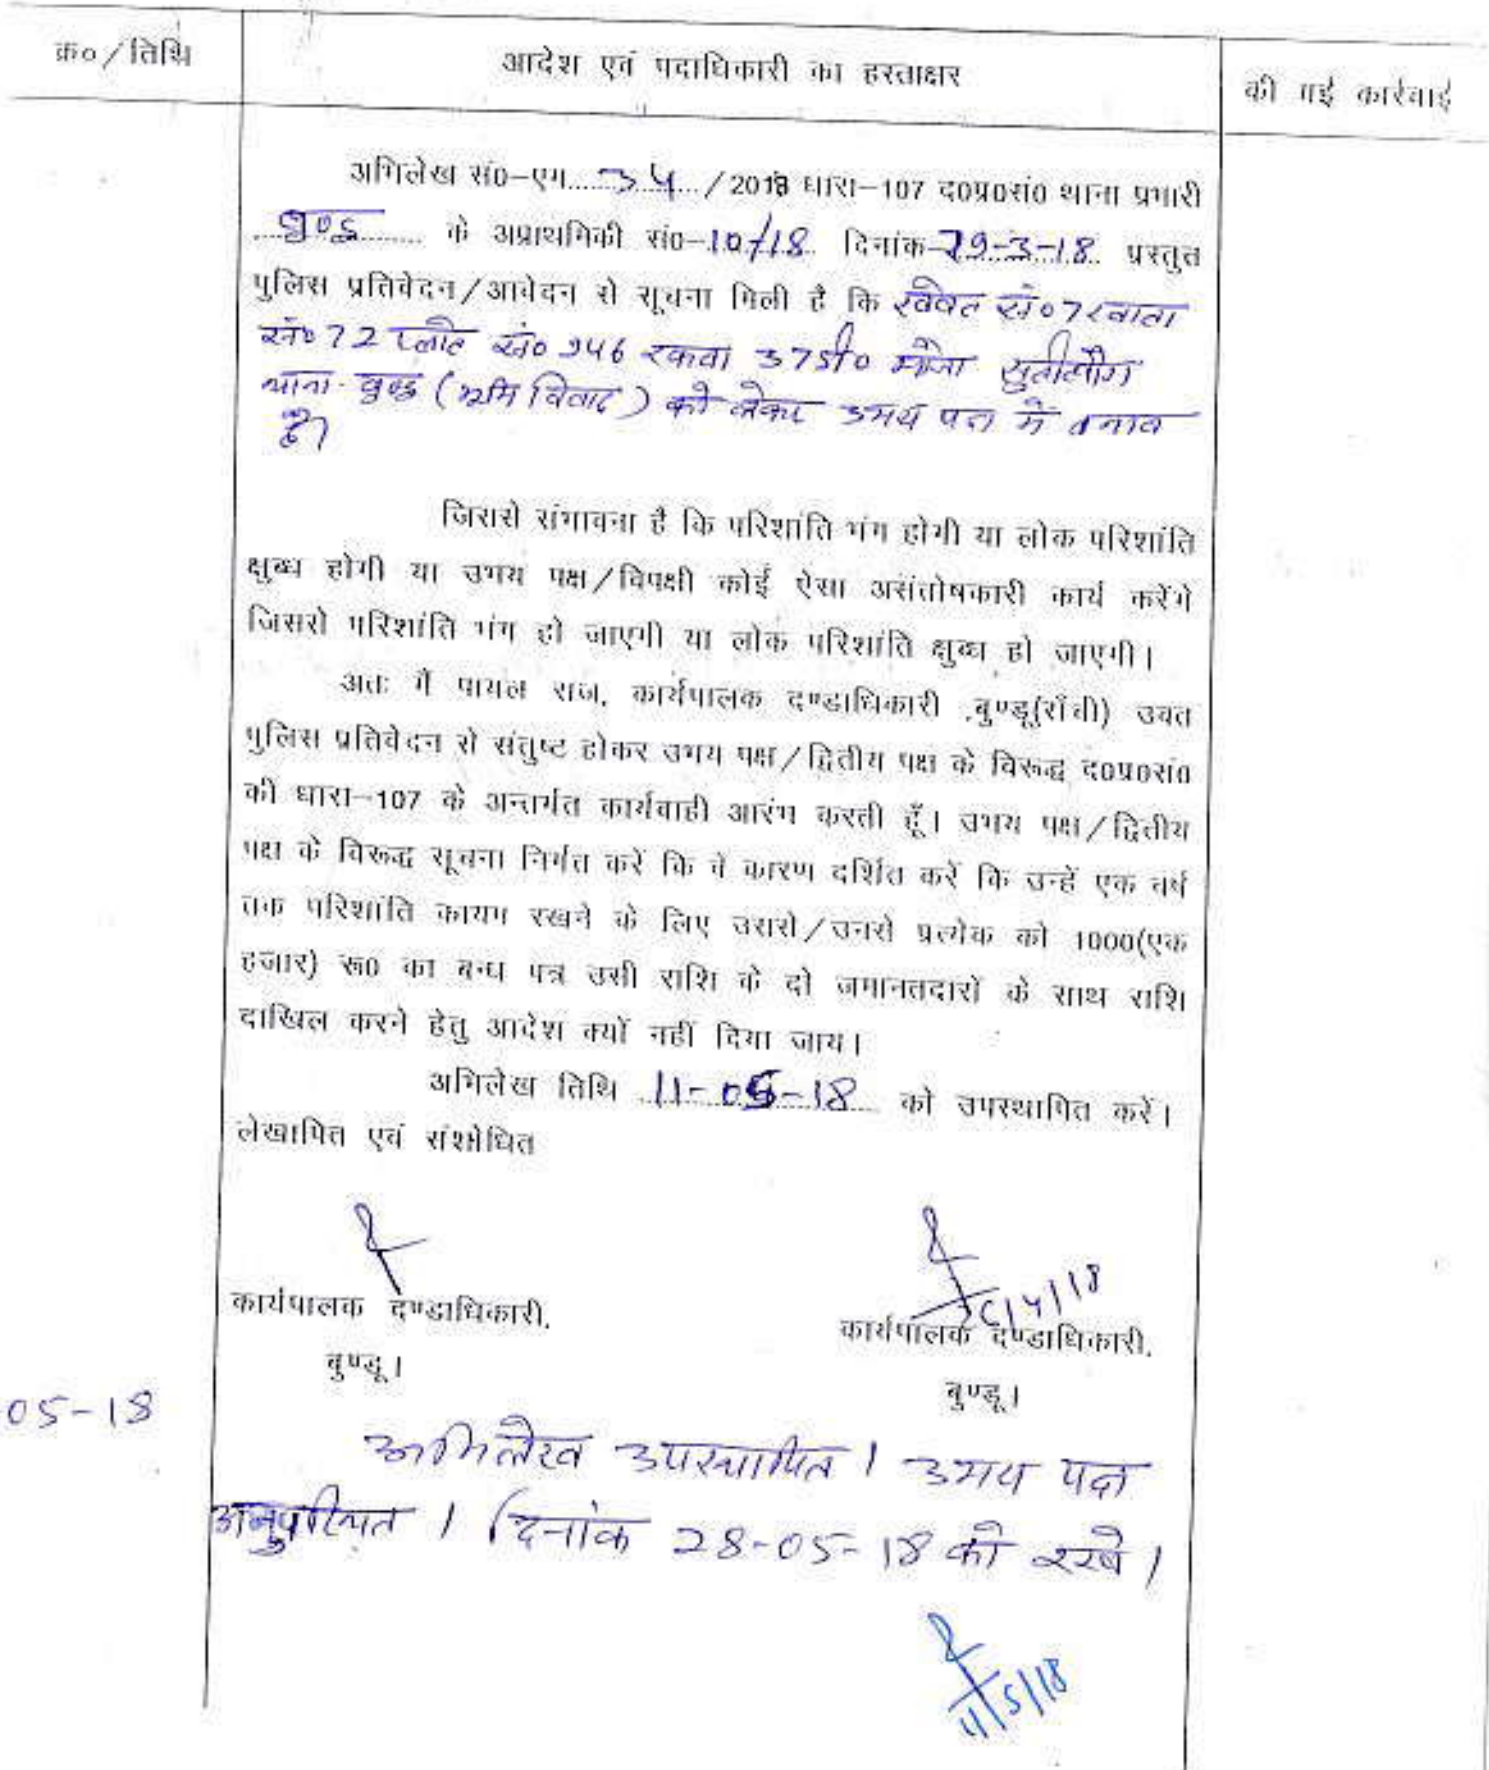 क्र०/तिथि
आदेश एवं पदाधिकारी का हस्ताक्षर
की गई कार्रवाई
अभिलेख सं0-एम 34 /2018 धारा-107 द0प्र0सं0 थाना प्रभारी
बुण्डू के अप्राथमिकी सं0-10/18 दिनांक-29-3-18 प्रस्तुत
पुलिस प्रतिवेदन/आवेदन से सूचना मिली है कि खेवट सं० 7 खाता
सं० 72 प्लॉट सं० 946 रकवा 37 डी० मौजा
थाना- बुण्डू (भूमि विवाद) को लेकर उभय पक्ष में तनाव
है।
जिससे संभावना है कि परिशांति भंग होगी या लोक परिशांति
क्षुब्ध होगी या उभय पक्ष/विपक्षी कोई ऐसा असंतोषकारी कार्य करेंगे
जिससे परिशांति भंग हो जाएगी या लोक परिशांति क्षुब्ध हो जाएगी।
अतः मैं पायल राज, कार्यपालक दण्डाधिकारी ,बुण्डू(राँची) उक्त
पुलिस प्रतिवेदन से संतुष्ट होकर उभय पक्ष/द्वितीय पक्ष के विरूद्ध द0प्र0सं0
की धारा-107 के अन्तर्गत कार्यवाही आरंभ करती हूँ। उभय पक्ष/द्वितीय
पक्ष के विरूद्ध सूचना निर्गत करें कि वें कारण दर्शित करें कि उन्हें एक वर्ष
तक परिशांति कायम रखने के लिए उससे/उनसे प्रत्येक को 1000(एक
हजार) रू0 का बन्ध पत्र उसी राशि के दो जमानतदारों के साथ राशि
दाखिल करने हेतु आदेश क्यों नहीं दिया जाय।
अभिलेख तिथि 11-05-18 को उपस्थापित करें।
लेखापित एवं संशोधित
कार्यपालक दण्डाधिकारी,
बुण्डू।
कार्यपालक दण्डाधिकारी,
बुण्डू।
05-18
अभिलेख उपस्थापित। उभय पक्ष
अनुपस्थित। दिनांक 28-05-18 को रखें।
11/5/18